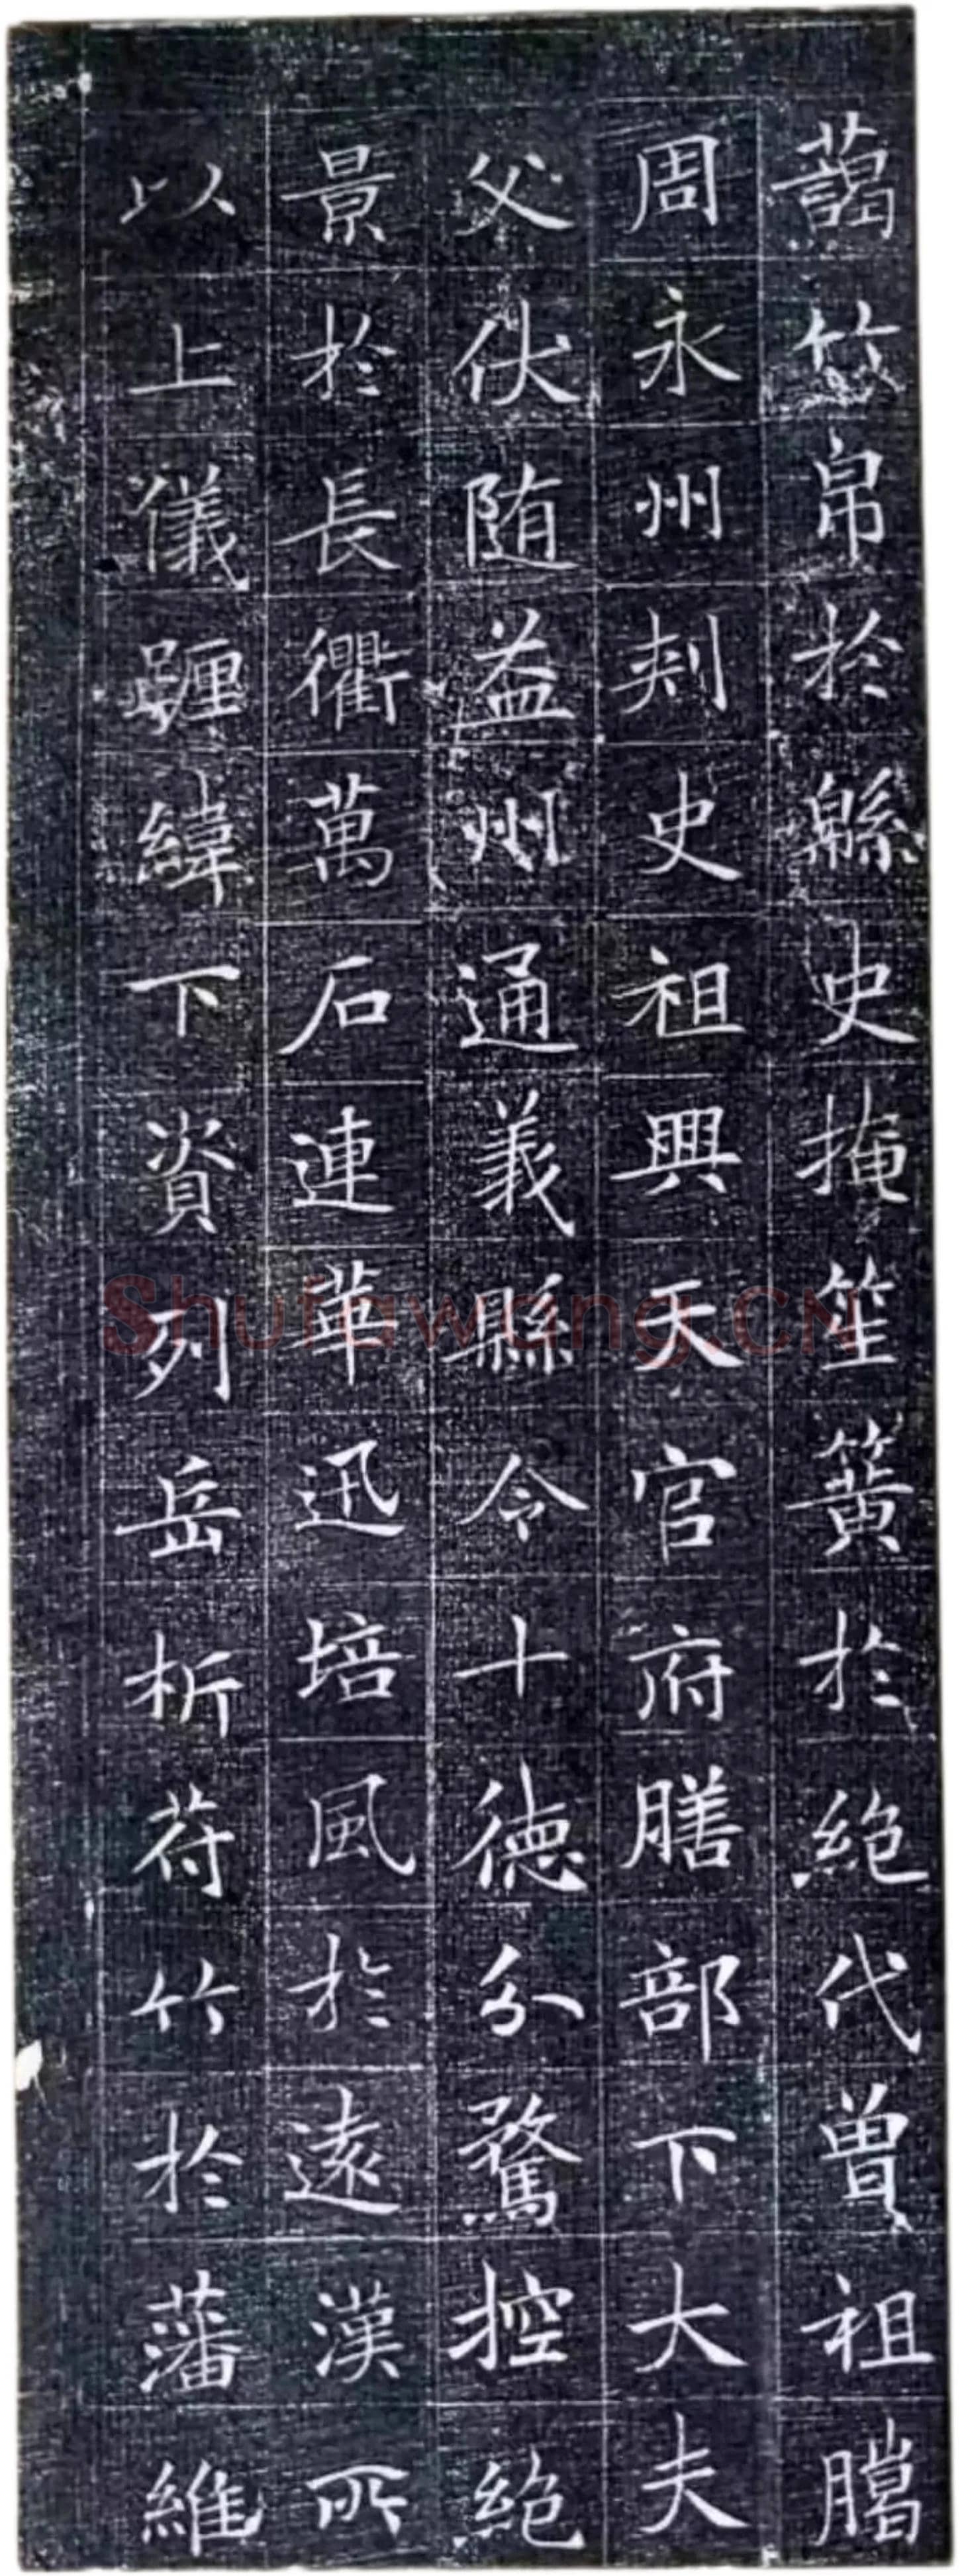 藹竹帛於緜史掩笙簧於絶代曽祖
周永州刾史祖興天官府膳部下大夫
父伏随益州通義縣令十徳分騖控絶
景於長衢萬石連華迅培風於遠漢所
以上儀躔緯下資列岳析苻竹於藩維
Shufawang.CN